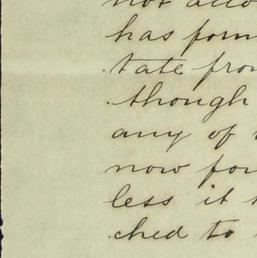 not allo
has form
tate from
though
any of
now for
less it
ched to